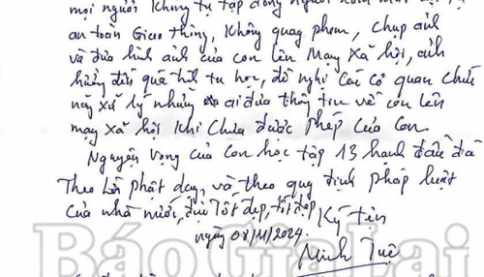 mọi người không tụ tập đông người
an toàn Giao thông, không quay phim, chụp ảnh
và đưa hình ảnh của con lên mạng xã hội, ảnh
hưởng đến quá trình tu học, đề nghị các cơ quan chức
năng xử lý những ai đưa thông tin về con lên
mạng xã hội khi chưa được phép của con.
Nguyện vọng của con học tập 13 hạnh đầu đà
Theo lời phật dạy, và theo quy định pháp luật
của nhà nước, đạo tốt đẹp, đời đẹp
Ký tên
ngày 08/11/2024
Minh Tuệ
Báo Gia Lai